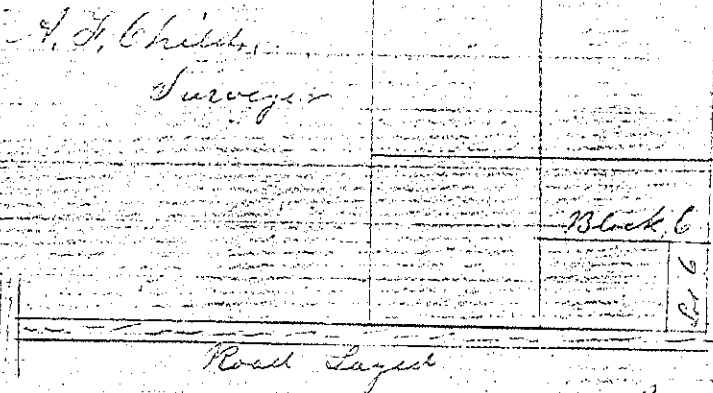 Childs,
Surveyor
Block 6
Lot 6
Road Layed